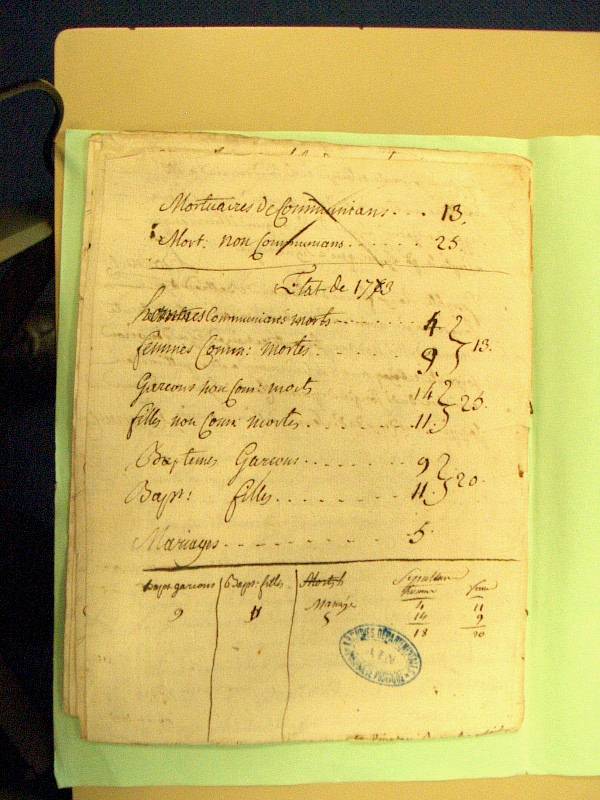 Mortuaires de Communians . . . 13.
Mort: non Communians . . . . . . 25.
Etat de 1783
hommes Communians morts . . . . . 4
femmes Comm: mortes . . . . . . 9 } 13.
Garcons non Com: morts . . . 14
filles non Com: mortes . . . . . . 11. } 25.
Baptemes Garcons . . . . . . . 9
Bapt: filles . . . . . . . 11 } 20.
Mariages . . . . . . . . . . . 5
Bapt. garcons Bapt. filles Sepulture
Mariage
9 11 5
4 11
14 9
18 20
ARCHIVES DÉPARTEMENTALES